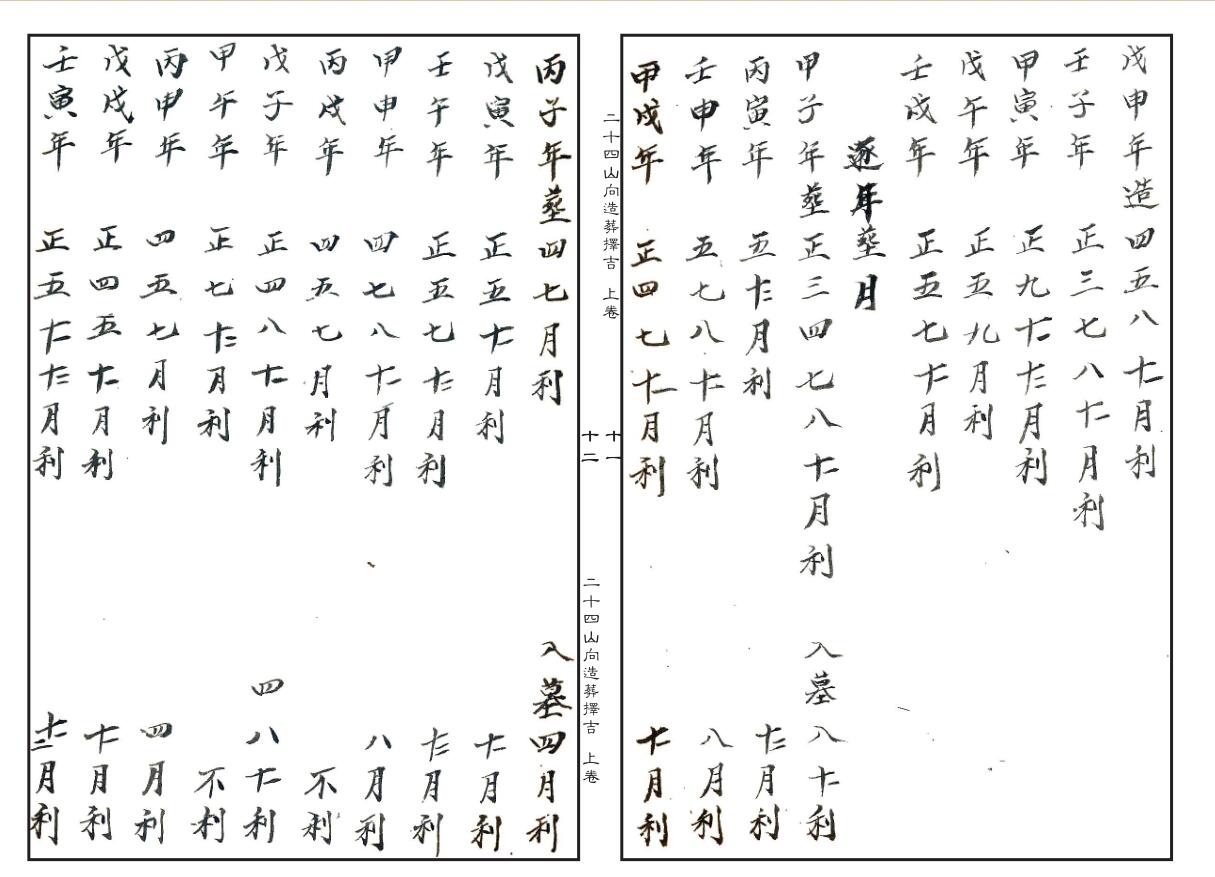 戊申年造四五八十一月利
壬子年 正三七八十一月利
甲寅年 正九十一十二月利
戊午年 正五九月利
壬戌年 正五七十一月利
逐年塟月
甲子年塟正三四七八十一月利 入墓八十一利
丙寅年 五十二月利 十二月利
壬申年 五七八十一月利 八月利
甲戌年 正四七十一月利 十一月利
二十四山向造葬擇吉 上卷 十一
十二 二十四山向造葬擇吉 上卷
丙子年塟四七月利 入墓四月利
戊寅年 正五十一月利 十一月利
壬午年 正五七十二月利 十二月利
甲申年 四七八十一月利 八月利
丙戌年 四五七月利 不利
戊子年 正四八十一月利 四八十一利
甲午年 正七十二月利 不利
丙申年 四五七月利 四月利
戊戌年 正四五十一月利 十一月利
壬寅年 正五十一十二月利 十一二月利